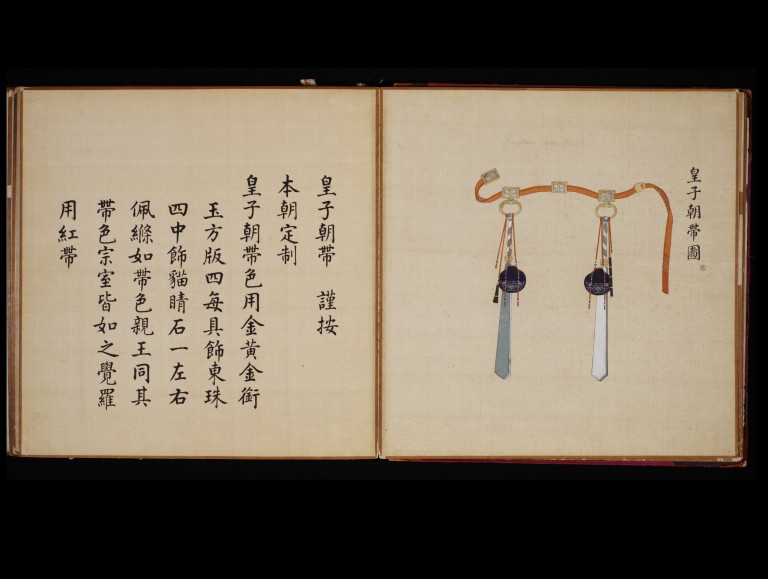 皇子朝帶圖
皇子朝帶　謹按
本朝定制
皇子朝帶色用金黃金銜
玉方版四每具飾東珠
四中飾貓睛石一左右
佩絛如帶色親王同其
帶色宗室皆如之覺羅
用紅帶